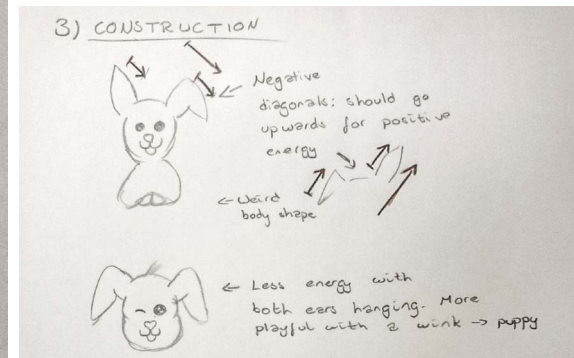 3) CONSTRUCTION
Negative
diagonals: should go
upwards for positive
energy
← Weird
body shape
← Less energy with
both ears hanging. More
playful with a wink → puppy